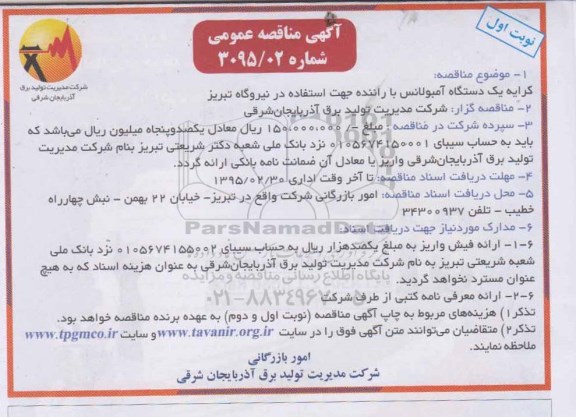 نوبت اول
آگهی مناقصه عمومی
شماره ۳۰۹۵/۰۲
شرکت مدیریت تولید برق
آذربایجان شرقی
۱- موضوع مناقصه:
کرایه یک دستگاه آمبولانس با راننده جهت استفاده در نیروگاه تبریز
۲- مناقصه گزار: شرکت مدیریت تولید برق آذربایجان‌شرقی
۳- سپرده شرکت در مناقصه: مبلغ ۱۵۰.۰۰۰.۰۰۰ ریال معادل یکصدوپنجاه میلیون ریال می‌باشد که
باید به حساب سیبای ۰۱۰۵۶۷۴۱۵۰۰۰۱ نزد بانک ملی شعبه دکتر شریعتی تبریز بنام شرکت مدیریت
تولید برق آذربایجان‌شرقی واریز یا معادل آن ضمانت نامه بانکی ارائه گردد.
۴- مهلت دریافت اسناد مناقصه: تا آخر وقت اداری ۱۳۹۵/۰۲/۳۰
۵- محل دریافت اسناد مناقصه: امور بازرگانی شرکت واقع در تبریز- خیابان ۲۲ بهمن - نبش چهارراه
خطیب - تلفن ۳۴۳۰۰۹۳۷
۶- مدارک موردنیاز جهت دریافت اسناد:
۶-۱- ارائه فیش واریز به مبلغ یکصدهزار ریال به حساب سیبای ۰۱۰۵۶۷۴۱۵۵۰۰۲ نزد بانک ملی
شعبه شریعتی تبریز به نام شرکت مدیریت تولید برق آذربایجان‌شرقی به عنوان هزینه اسناد که به هیچ
عنوان مسترد نخواهد گردید.
۶-۲- ارائه معرفی نامه کتبی از طرف شرکت
تذکر۱) هزینه‌های مربوط به چاپ آگهی مناقصه (نوبت اول و دوم) به عهده برنده مناقصه خواهد بود.
تذکر۲) متقاضیان می‌توانند متن آگهی فوق را در سایت www.tavanir.org.ir و سایت www.tpgmco.ir
ملاحظه نمایند.
امور بازرگانی
شرکت مدیریت تولید برق آذربایجان شرقی
ParsNamadData
پایگاه اطلاع رسانی مناقصه و مزایده